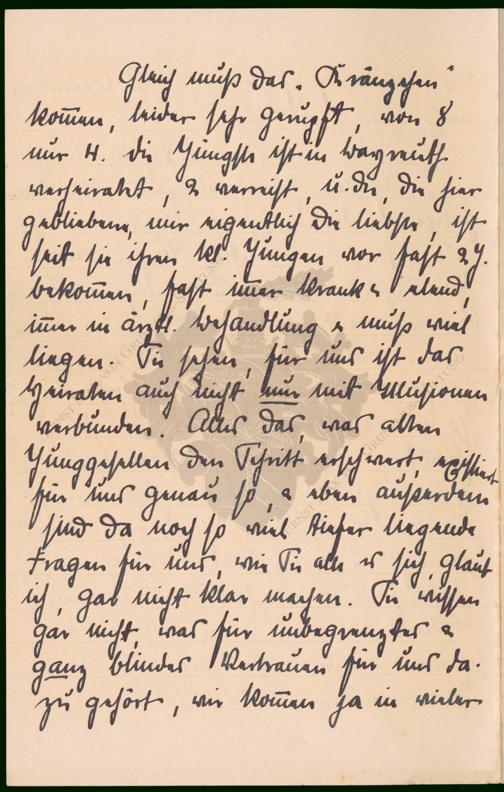 Gleich muß das „Kränzchen"
kom̅en, leider sehr gerupft, von 8
nur 4. die Jüngste ist in Bayreuth
verheiratet, 2 verreist, u. die, die hier
gebliebene, mir eigentlich die liebste, ist
seit sie ihren kl. Jungen vor fast 2 J.
bekom̅en, fast im̅er krank & elend,
im̅er in ärztl. Behandlung & muß viel
liegen. Sie sehen, für uns ist das
Heiraten auch nicht nur mit Illusionen
verbunden. Alles das, was alten
Junggesellen den Schritt erschwert, existiert
für uns genau so, & eben außerdem
sind da noch so viel tiefer liegende
Fragen für uns, wie Sie alle es sich, glaub
ich, gar nicht klar machen. Sie wissen
gar nicht, was für unbegrenztes &
ganz blindes Vertrauen für uns da-
zu gehört, wir kom̅en ja in vieler